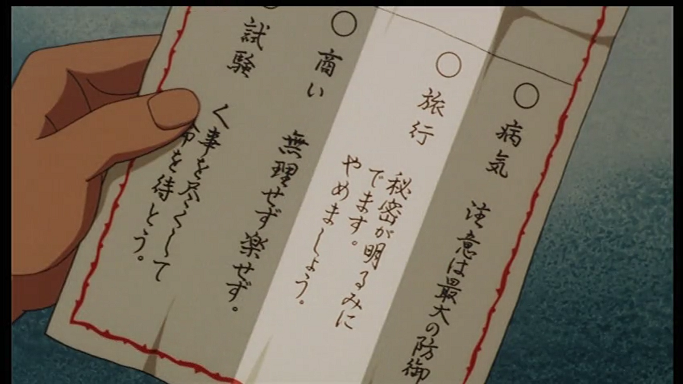 ○病気 注意は最大の防御
○旅行 秘密が明るみに
でます。
やめましょう。
○商い 無理せず楽せず。
○試験 事を尽くして
を待とう。